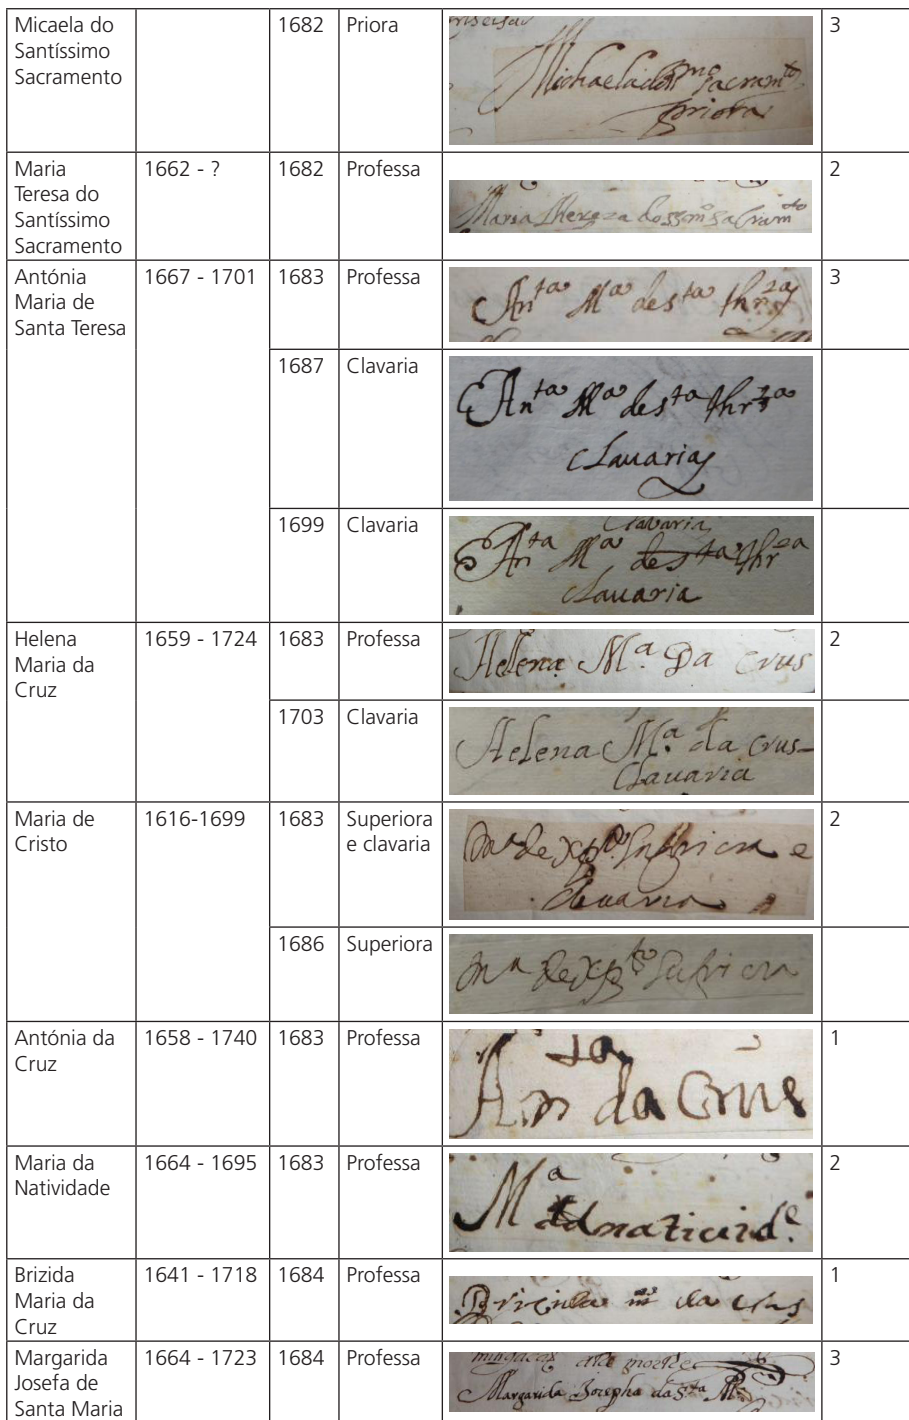 Micaela do
Santíssimo
Sacramento
1682
Priora
Michaela do ss.mo sacramto
priora
3
Maria
Teresa do
Santíssimo
Sacramento
1662 - ?
1682
Professa
Maria Thereza do ssmo sacramto
2
Antónia
Maria de
Santa Teresa
1667 - 1701
1683
Professa
Anta Ma de sta thrza
3
1687
Clavaria
Anta Ma de sta thrza
clauaria
1699
Clavaria
Clavaria
Anta Ma de sta thrza
clauaria
Helena
Maria da
Cruz
1659 - 1724
1683
Professa
Hellena M.a Da Crus
2
1703
Clavaria
Helena M.a da Crus
Clauaria
Maria de
Cristo
1616-1699
1683
Superiora
e clavaria
e
clauaria
2
1686
Superiora
Antónia da
Cruz
1658 - 1740
1683
Professa
Anta da Crus
1
Maria da
Natividade
1664 - 1695
1683
Professa
Ma d natiuid.e
2
Brizida
Maria da
Cruz
1641 - 1718
1684
Professa
da crus
1
Margarida
Josefa de
Santa Maria
1664 - 1723
1684
Professa
Margarida Josepha da Sta Ma
3